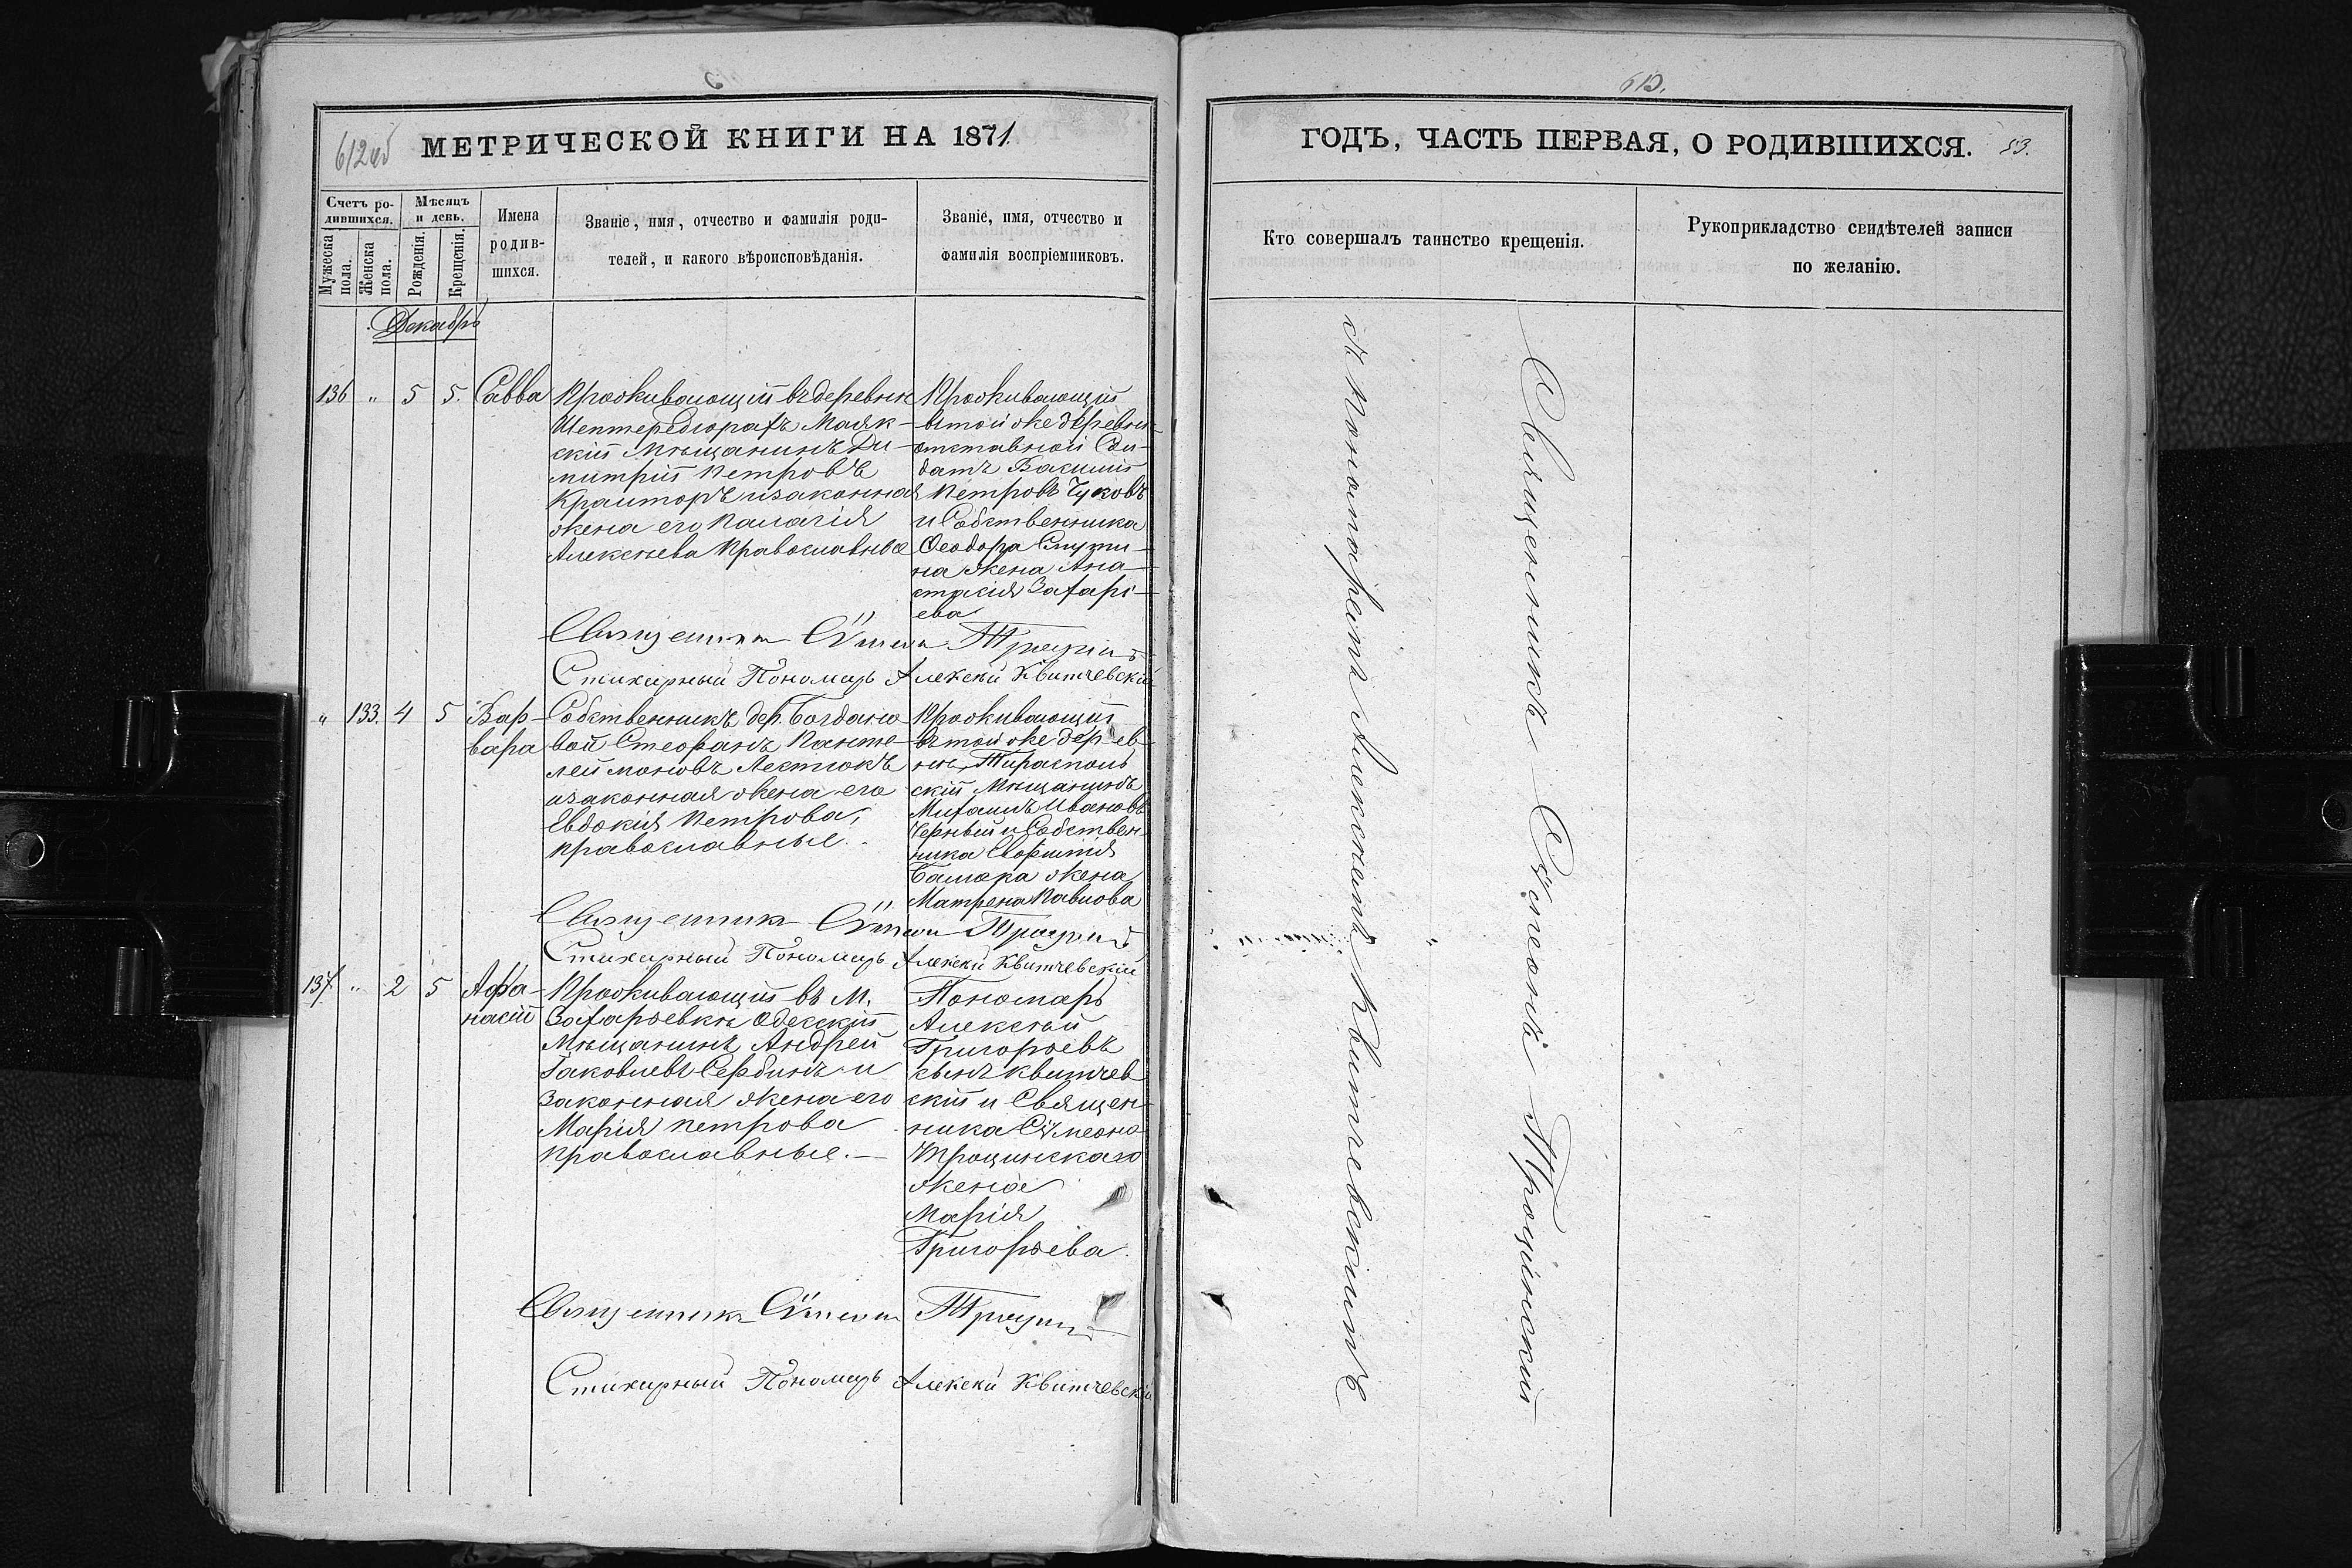 6
612об
МЕТРИЧЕСКОЙ КНИГИ НА 1871.
Счетъ ро-
дившихся.
Мѣсяцъ
и день.
Мужеска
пола.
Женска
пола.
Рожденія.
Крещенія.
Имена
родив-
шихся.
Званіе, имя, отчество и фамилія роди-
телей, и какого вѣроисповѣданія.
Званіе, имя, отчество и
фамилія воспріемниковъ.
Декабрь
136 " 5 5. Савва
Проживающій въ деревнѣ
Маяк-
скій Мѣщанинъ Ди-
митрій Петровъ
Краиторъ и законная
жена его Палагія
Алексѣева Православные
Проживающій
въ той же деревни
отставной Сол-
датъ Василій
Петровъ Чуковъ
и Собственника
Ѳеодора
на жена Ана-
стасія Захарі-
ева
Священникъ Сѵмеонъ
Стихарный Пономарь Алексѣй Квитчевскій
" 133. 4 5 Вар-
вара
Собственникъ дер. Богдано
вой Стефанъ Панте-
леймоновъ Лестюкъ
и законная жена его
Евдокія Петрова,
православные.
Проживающій
въ той же дерев
нѣ, Тирасполь
скій Мѣщанинъ
Михаилъ Ивановъ
Черный и Собствен
ника Евфимія
жена
Матрена Павлова
Священникъ Сѵмеонъ
Стихарный Пономарь Алексѣй Квитчевскій
137. " 2 5 Афа-
насій
Проживающій въ М.
Захарьевкѣ Одесскій
Мѣщанинъ Андрей
Іаковлевъ Сербинъ и
Законная жена его
Марія Петрова
православные.—
Пономарь
Алексѣй
Григорьевъ
сынъ Квитчев
скій и Священ
ника Сѵмеона
Троцинскаго
жена
Марія
Григорьева.
Священникъ Сѵмеонъ
Стихарный Пономарь Алексѣй Квитчевскій
613.
ГОДЪ, ЧАСТЬ ПЕРВАЯ, О РОДИВШИХСЯ. 83.
Кто совершалъ таинство крещенія.
Рукоприкладство свидѣтелей записи
по желанію.
Священникъ Сѵмеонъ Троцинскій
съ Пономаремъ Алексѣемъ Квитчевскимъ